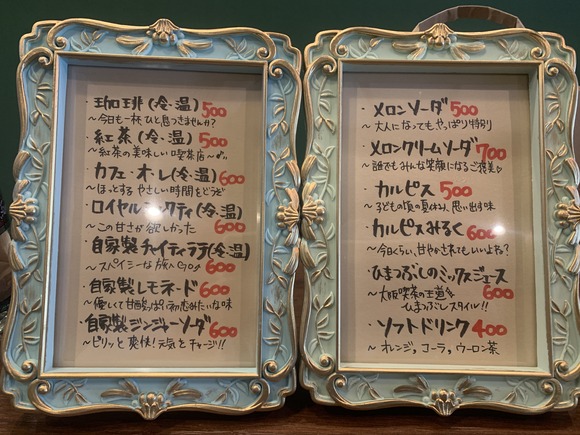 ・珈琲(冷・温) 500
〜今日も一杯、ひと息つきませんか?
・紅茶(冷・温) 500
〜紅茶の美味しい喫茶店〜♪
・カフェ・オ・レ(冷・温) 600
〜ほっとする やさしい時間をどうぞ
・ロイヤルミルクティ(冷・温)
〜この甘さが欲しかった 600
・自家製チャイティラテ(冷・温)
〜スパイシーな旅へGO! 600
・自家製レモネード 600
〜優しくて甘酸っぱい初恋みたいな味
・自家製ジンジャーソーダ 600
〜ピリッと爽快!元気をチャージ!!
・メロンソーダ 500
〜大人になっても、やっぱり特別
・メロンクリームソーダ 700
〜誰でもみんな笑顔になるご褒美♡
・カルピス 500
〜子どもの頃の夏休み、思い出す味
・カルピスみるく 600
〜今日くらい、甘やかされてもいいよね?
・ひまつぶしのミックスジュース
〜大阪喫茶の王道を 600
ひまつぶしスタイル!!
・ソフトドリンク 400
〜オレンジ、コーラ、ウーロン茶